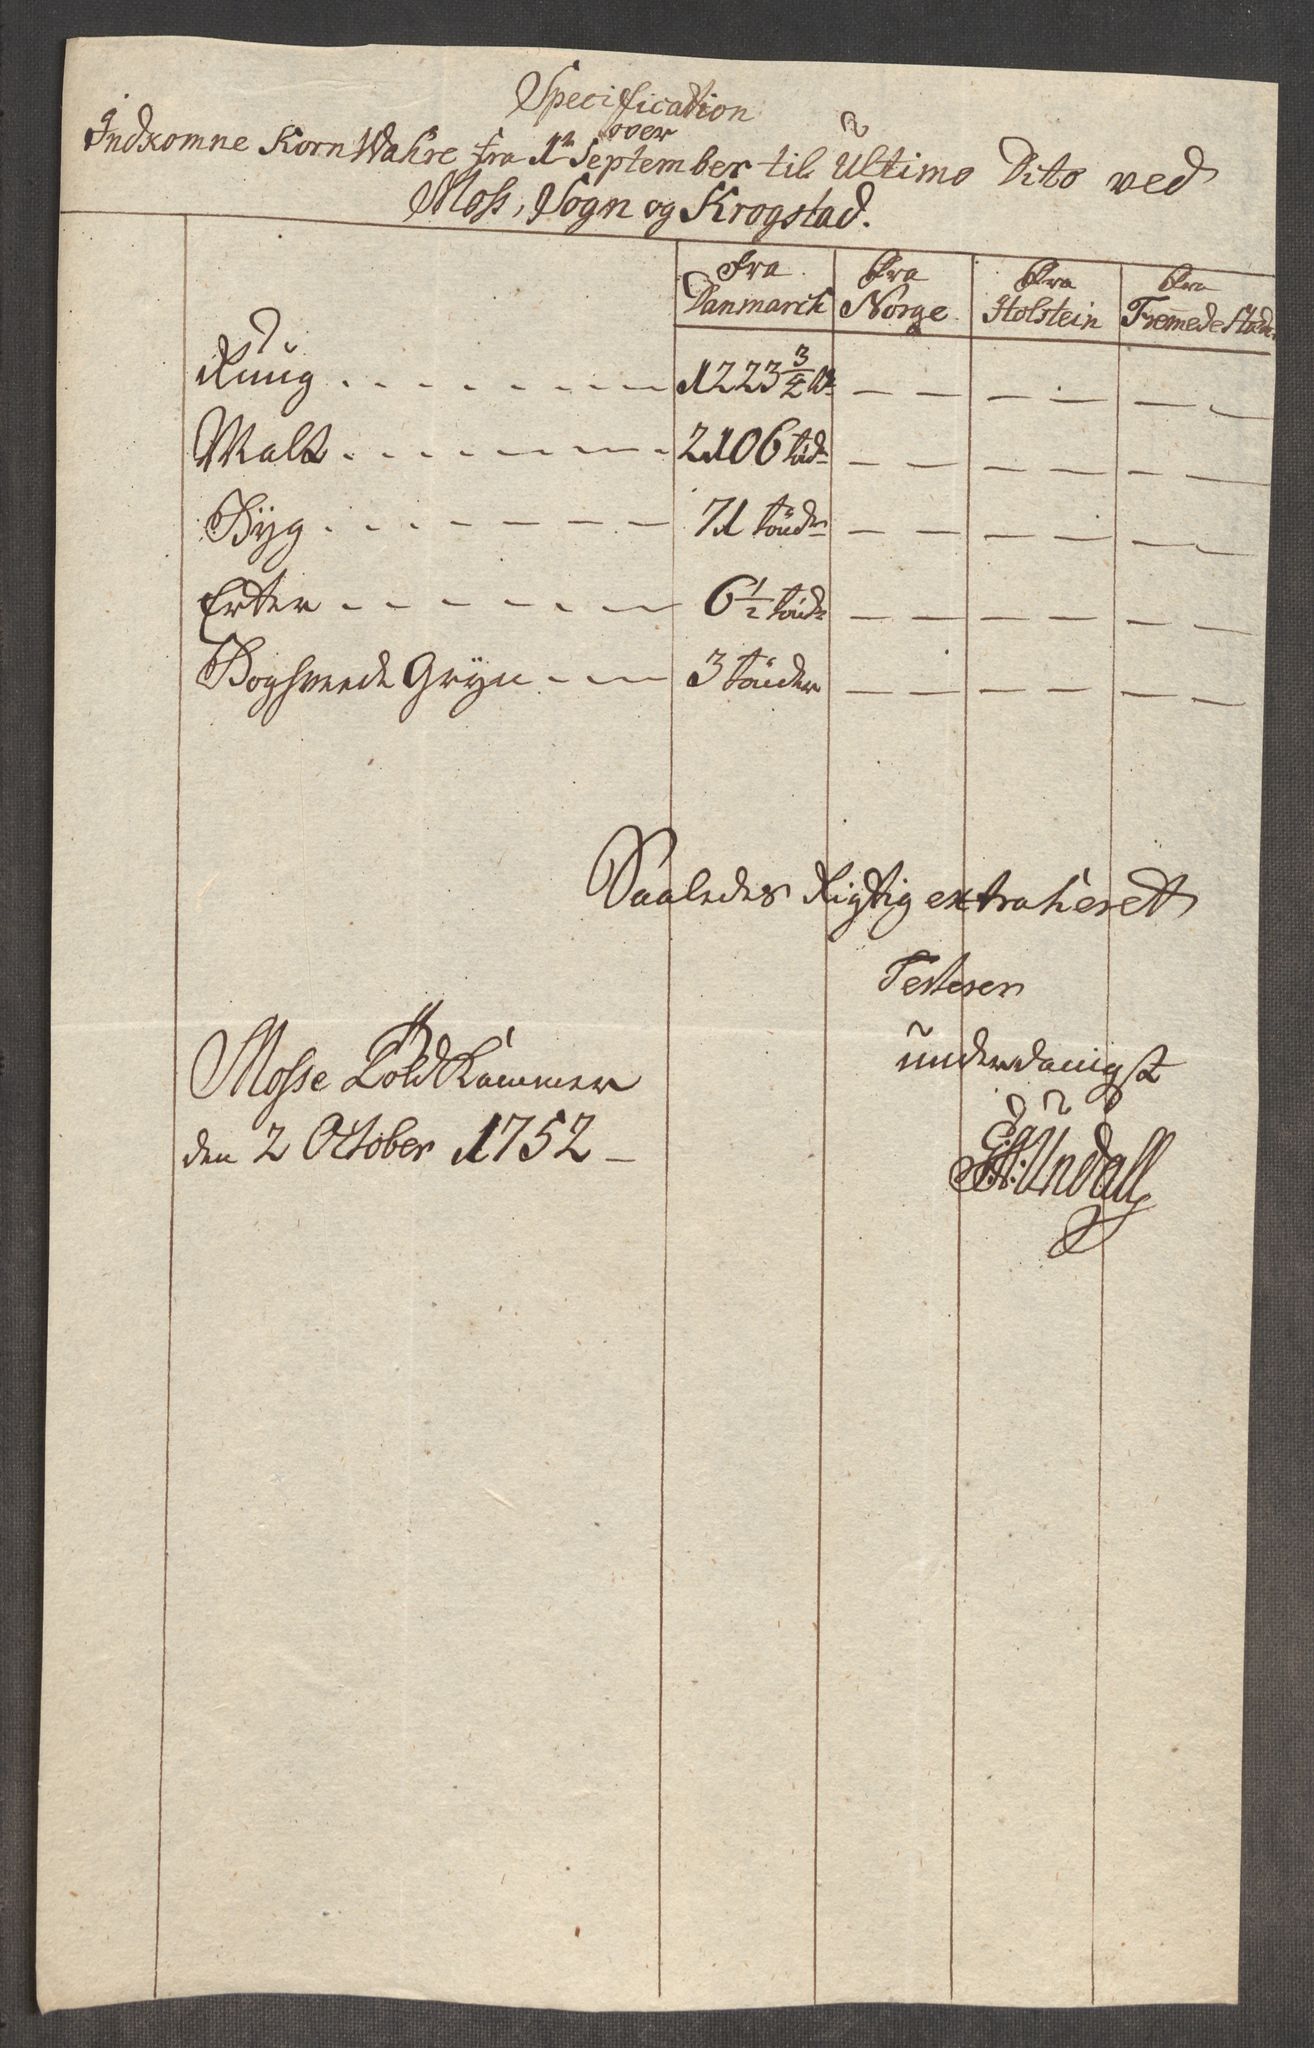 Specification
over
Indkomne Korn Wahre fra 1te September til Ultimo Dito ved
Moss, Sogn og Krogstad.
fra Danmarck fra Norge fra Holstein fra Fremede Stæder
Rug 1223 3/4 td
Malt 2106 tdr
Byg 71 tönder
Erter 6 1/2 tönder
Boghvede Gryn 3 tönder
Saaledes Rigtig extraheret
Testerer
underdanigst
Mosse Told Kammer
den 2 October 1752
Undall